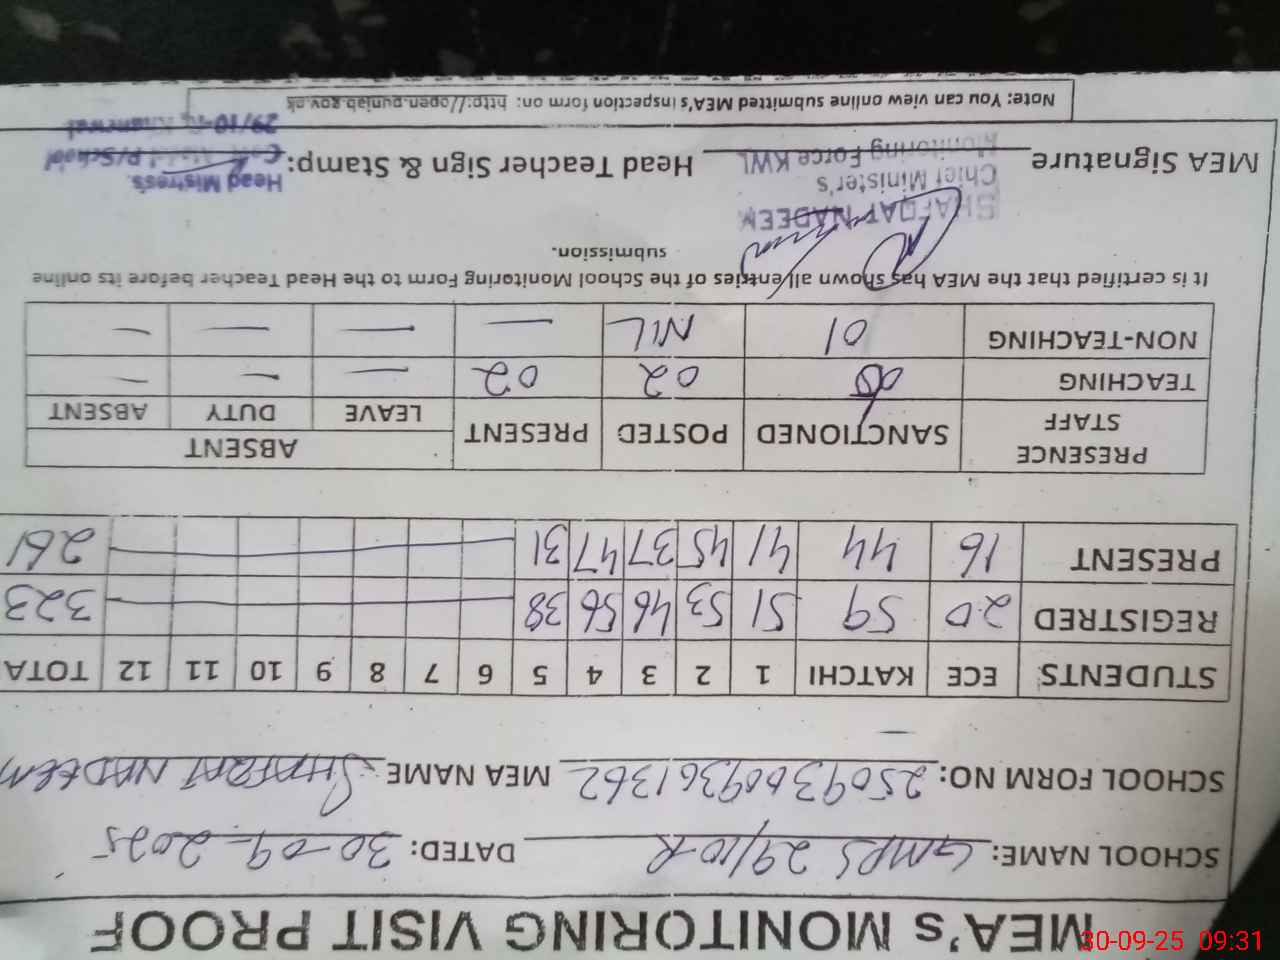 MEA's MONITORING VISIT PROOF
SCHOOL NAME: GMPS 29/10-R DATED: 30-09-2025
SCHOOL FORM NO: 25093009361362 MEA NAME SHAFQAT NADEEM
STUDENTS ECE KATCHI 1 2 3 4 5 6 7 8 9 10 11 12 TOTA
REGISTRED 20 59 51 53 46 56 38 323
PRESENT 16 44 41 45 37 47 31 261
PRESENCE STAFF SANCTIONED POSTED PRESENT ABSENT
LEAVE DUTY ABSENT
TEACHING 02 02
NON-TEACHING 01 NIL
It is certified that the MEA has shown all entries of the School Monitoring Form to the Head Teacher before its online
submission.
SHAFQAT NADEEM
Chief Minister's
Monitoring Force KWL
MEA Signature Head Teacher Sign & Stamp:
Head Mistress
P/School
29/10-R, Khanewal
Note: You can view online submitted MEA's inspection form on: http://open.punjab.gov.pk
30-09-25 09:31